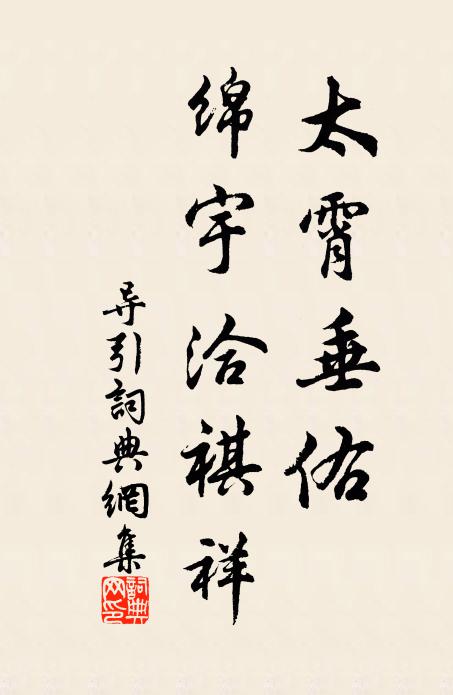 太霄垂佑
绵宇洽祺祥
导引词典網集
詞典网印